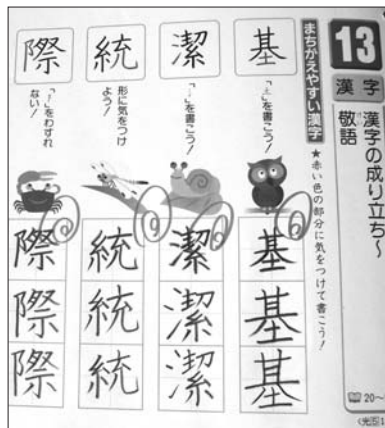 13
漢字
漢字の成り立ち〜
敬語
20〜
まちがえやすい漢字
★赤い色の部分に気をつけて書こう!
基
」を書こう!
基
基
基
潔
」を書こう!
潔
潔
潔
統
形に気をつけ
よう!
統
統
統
際
」をわすれ
ない!
際
際
際